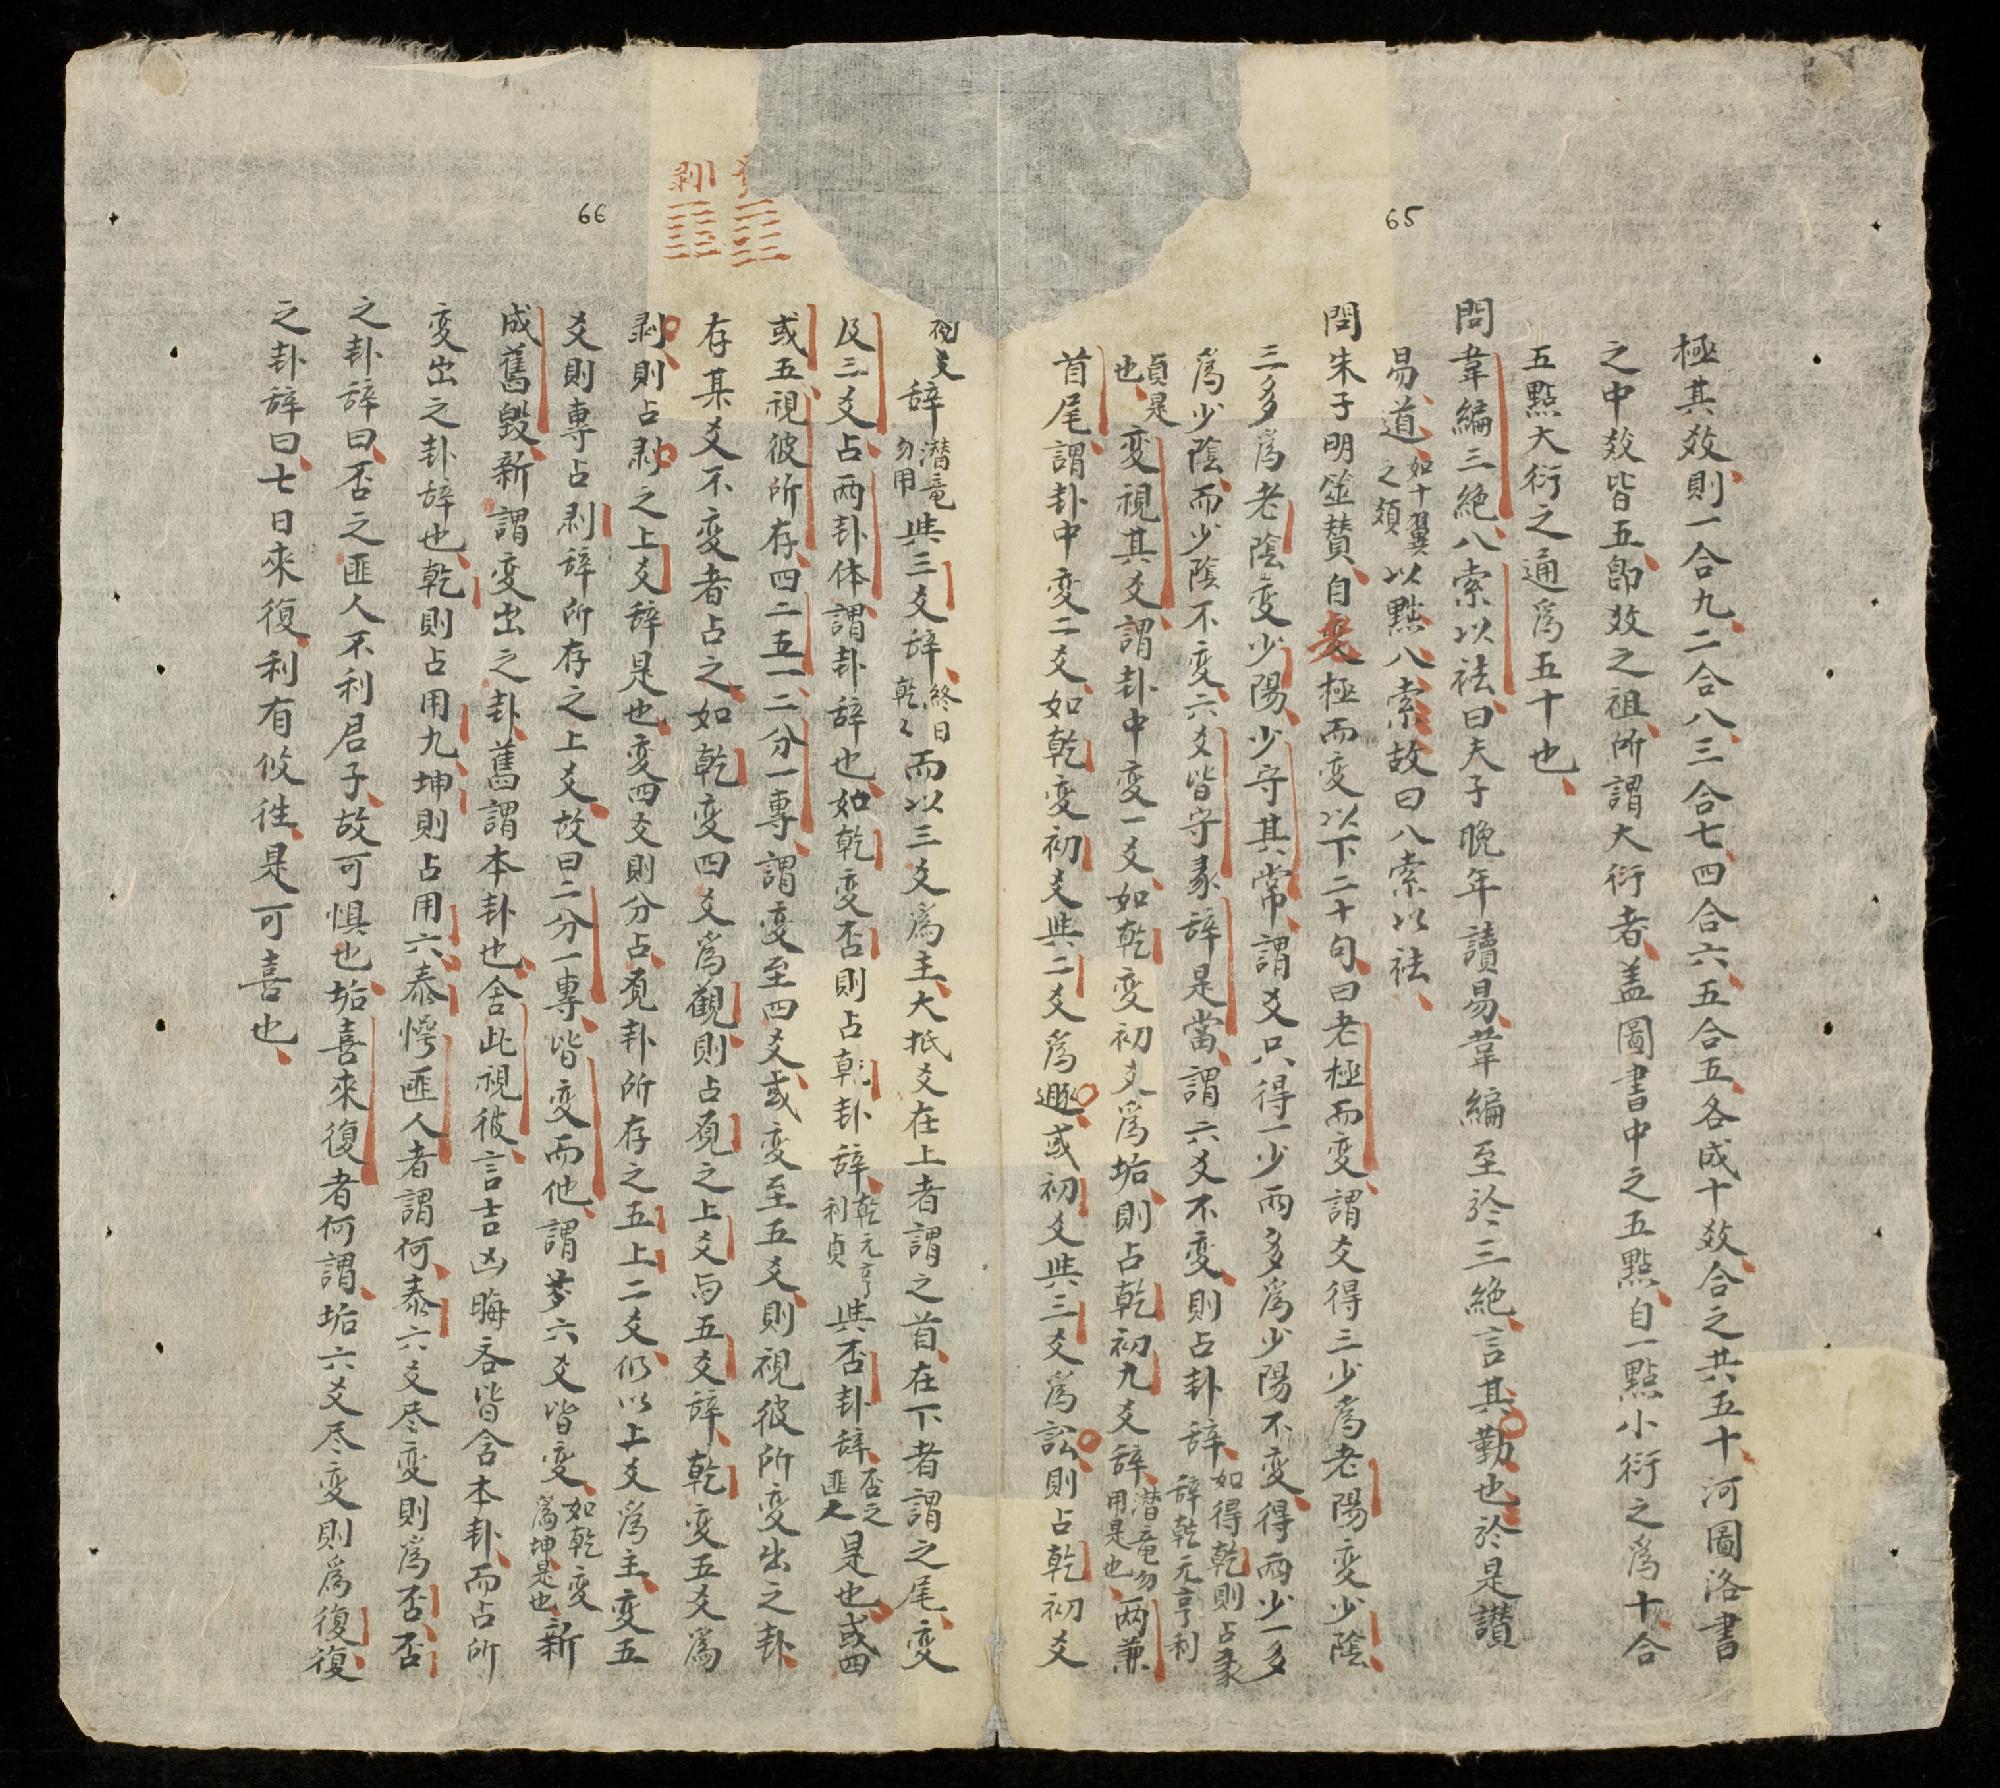 65
極其𢿙則一合九二合八三合七四合六五合五各成十𢿙合之共五十河圖洛書
之中𢿙皆五即𢿙之祖所謂大衍者盖圖書中之五點自一點小衍之爲十合
五點大衍之通爲五十也
問韋編三絶八索以袪曰夫子晚年讀易韋編至於三絶言其勤也於是讃
易道如十翼之類以點八索故曰八索以袪
問朱子明筮賛自变極而变以下二十句曰老極而变謂爻得三少爲老陽变少陰
三多爲老陰变少陽少守其常謂爻只得一少两多爲少陽不变得两少一多
爲少陰而少陰不变六爻皆守彖辞是當謂六爻不变則占卦辞如得乾則占彖辞乾元亨利
貞是也变視其爻謂卦中变一爻如乾变初爻爲垢則占乾初九爻辞潜竜勿用是也两兼
首尾謂卦中变二爻如乾变初爻與二爻爲遯或初爻與三爻爲訟則占乾初爻
66
剥
視爻辞潜竜勿用與三爻辞終日乾〻而以三爻爲主大抵爻在上者謂之首在下者謂之尾变
及三爻占两卦体謂卦辞也如乾变否則占乾卦辞乾元亨利貞與否卦辞否之匪人是也或四
或五視彼所存四二五一二分一專謂变至四爻或变至五爻則視彼所变出之卦
存某爻不变者占之如乾变四爻爲観則占覌之上爻与五爻辞乾变五爻爲
剥則占剥之上爻辞是也变四爻則分占覌卦所存之五上二爻仍以上爻爲主变五
爻則專占剥辞所存之上爻故曰二分一專皆变而他謂𦱤六爻皆变如乾变爲坤是也新
成舊毁新謂变出之卦舊謂本卦也舍此視彼言吉凶晦吝皆舍本卦而占所
变出之卦辞也乾則占用九坤則占用六泰愕匪人者謂何泰六爻尽变則爲否否
之卦辞曰否之匪人不利君子故可惧也垢喜來復者何謂垢六爻尽变則爲復復
之卦辞曰七日來復利有攸往是可喜也